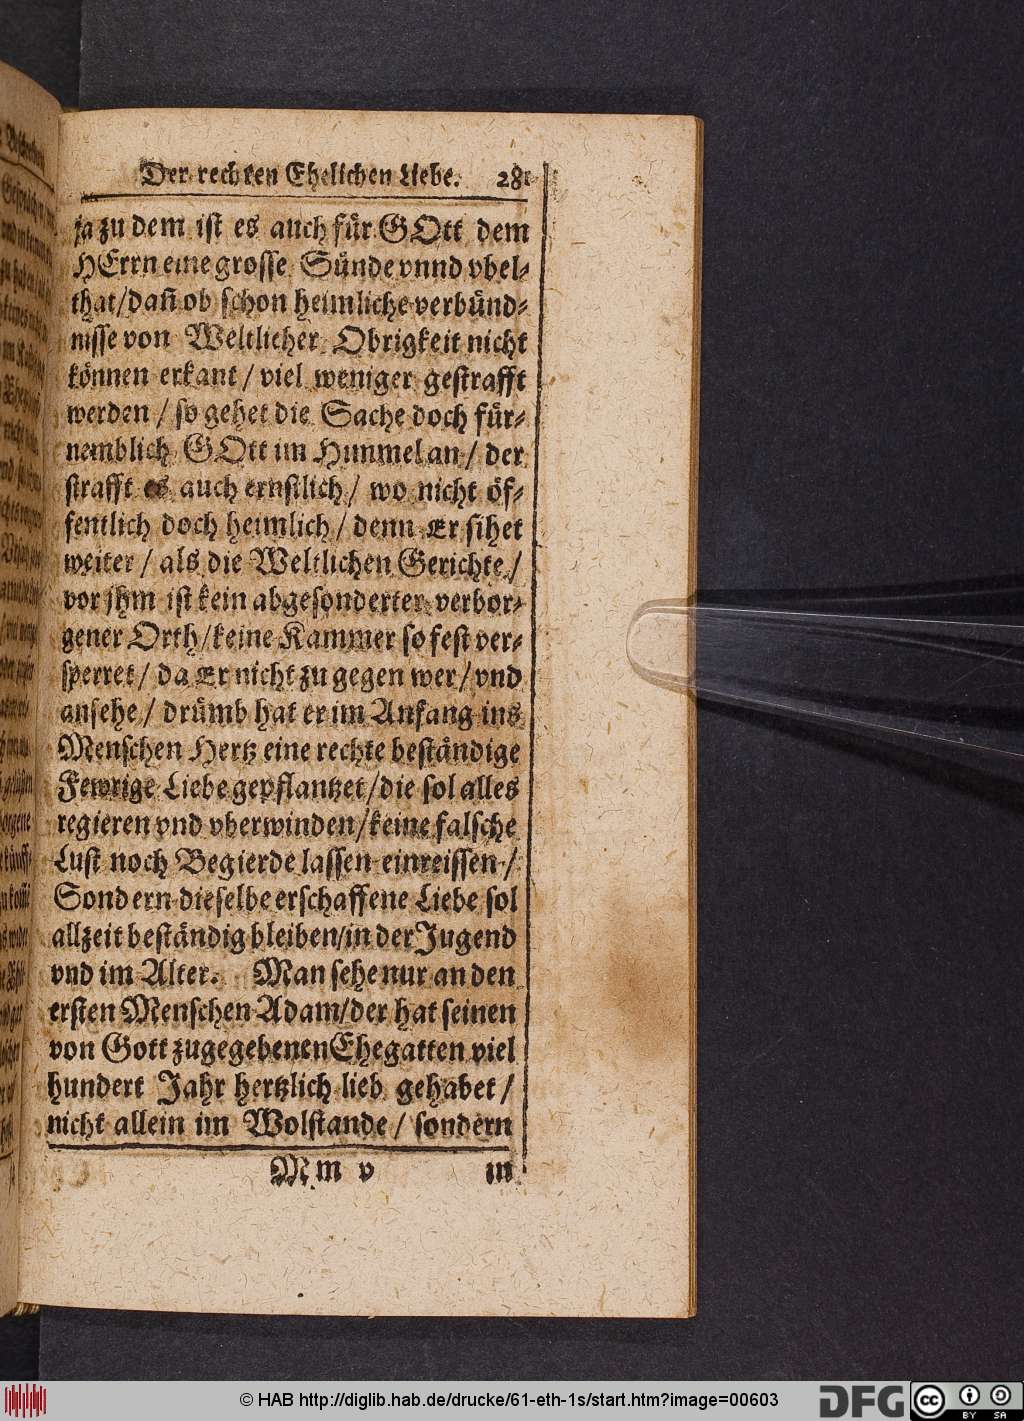 Der rechten Ehelichen Liebe. 281
ja zu dem ist es auch für GOtt dem
HErrn eine grosse Sünde vnnd vbel-
that/dañ ob schon heimliche verbünd-
nisse von Weltlicher Obrigkeit nicht
können erkant / viel weniger gestrafft
werden / so gehet die Sache doch für-
nemblich GOtt im Himmel an / der
strafft es auch ernstlich / wo nicht öf-
fentlich doch heimlich / denn Er sihet
weiter / als die Weltlichen Gerichte /
vor jhm ist kein abgesonderter verbor-
gener Orth/keine Kammer so fest ver-
sperret / da Er nicht zu gegen wer / vnd
ansehe / drümb hat er im Anfang ins
Menschen Hertz eine rechte beständige
Fewrige Liebe gepflantzet/die sol alles
regieren vnd vberwinden/keine falsche
Lust noch Begierde lassen einreissen /
Sondern dieselbe erschaffene Liebe sol
allzeit beständig bleiben/in der Jugend
vnd im Alter. Man sehe nur an den
ersten Menschen Adam/der hat seinen
von Gott zugegebenen Ehegatten viel
hundert Jahr hertzlich lieb gehabet /
nicht allein im Wolstande / sondern
M m v in
© HAB http://diglib.hab.de/drucke/61-eth-1s/start.htm?image=00603
DFG
cc BY SA